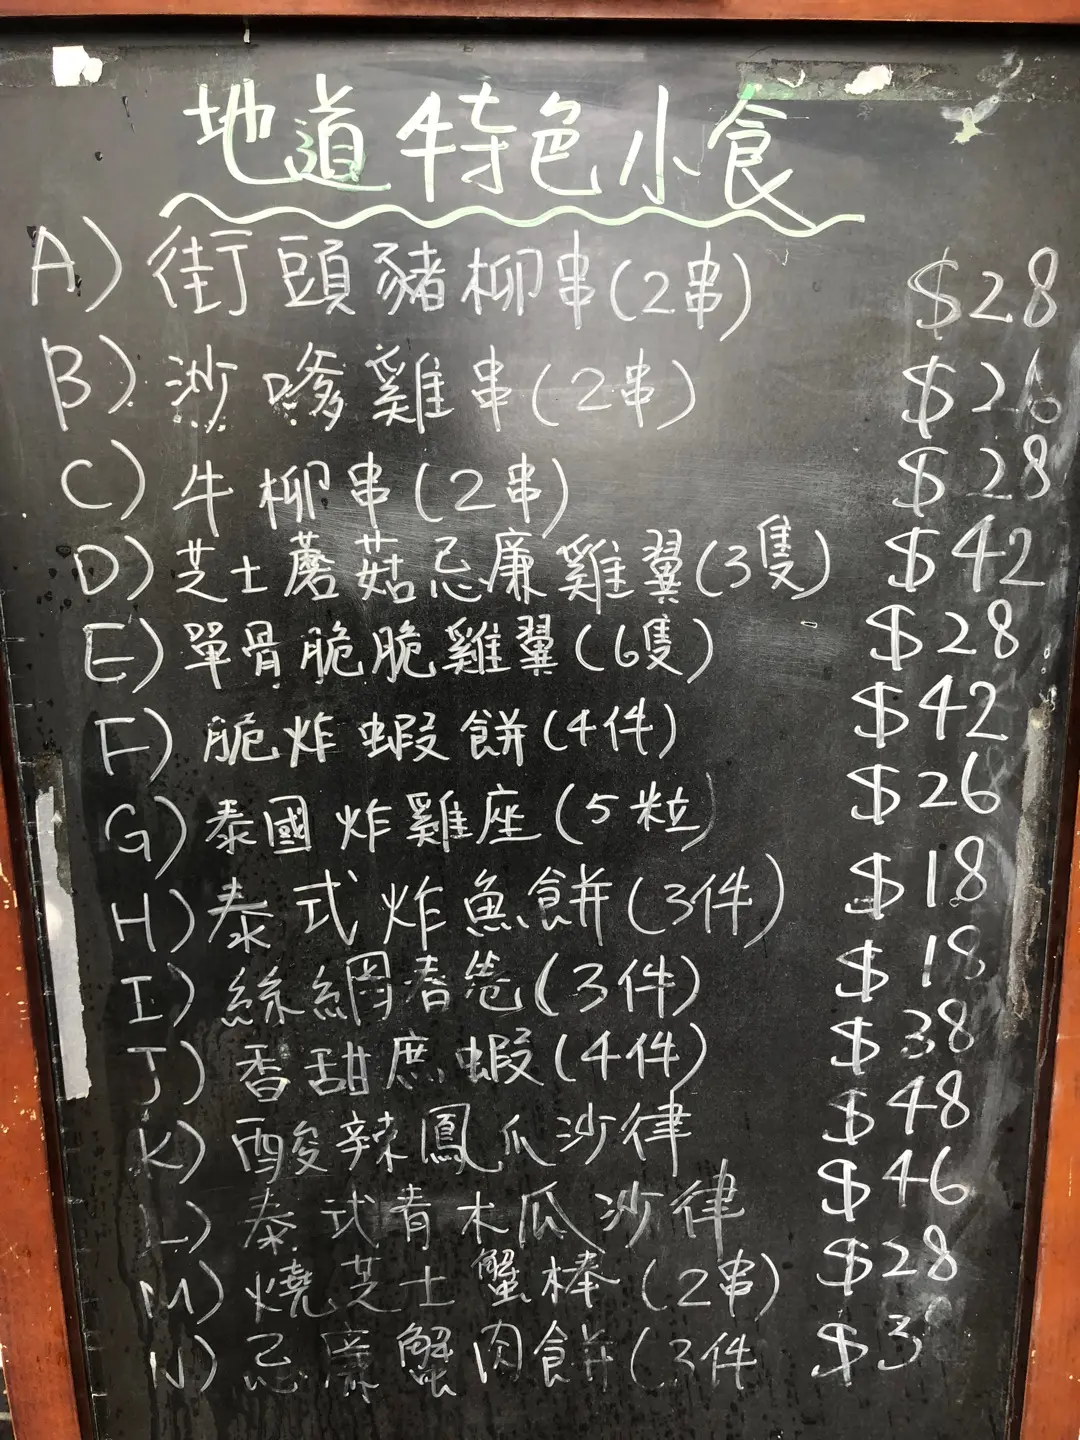 地道特色小食
A) 街頭豬柳串(2串) $28
B) 沙嗲雞串(2串) $26
C) 牛柳串(2串) $28
D) 芝士蘑菇忌廉雞翼(3隻) $42
E) 單骨脆脆雞翼(6隻) $28
F) 脆炸蝦餅(4件) $42
G) 泰國炸雞座(5粒) $26
H) 泰式炸魚餅(3件) $18
I) 絲網春卷(3件) $18
J) 香甜庶蝦(4件) $38
K) 酸辣鳳爪沙律 $48
L) 泰式青木瓜沙律 $46
M) 燒芝士蟹棒(2串) $28
N) 忌廉蟹肉餅(3件 $3